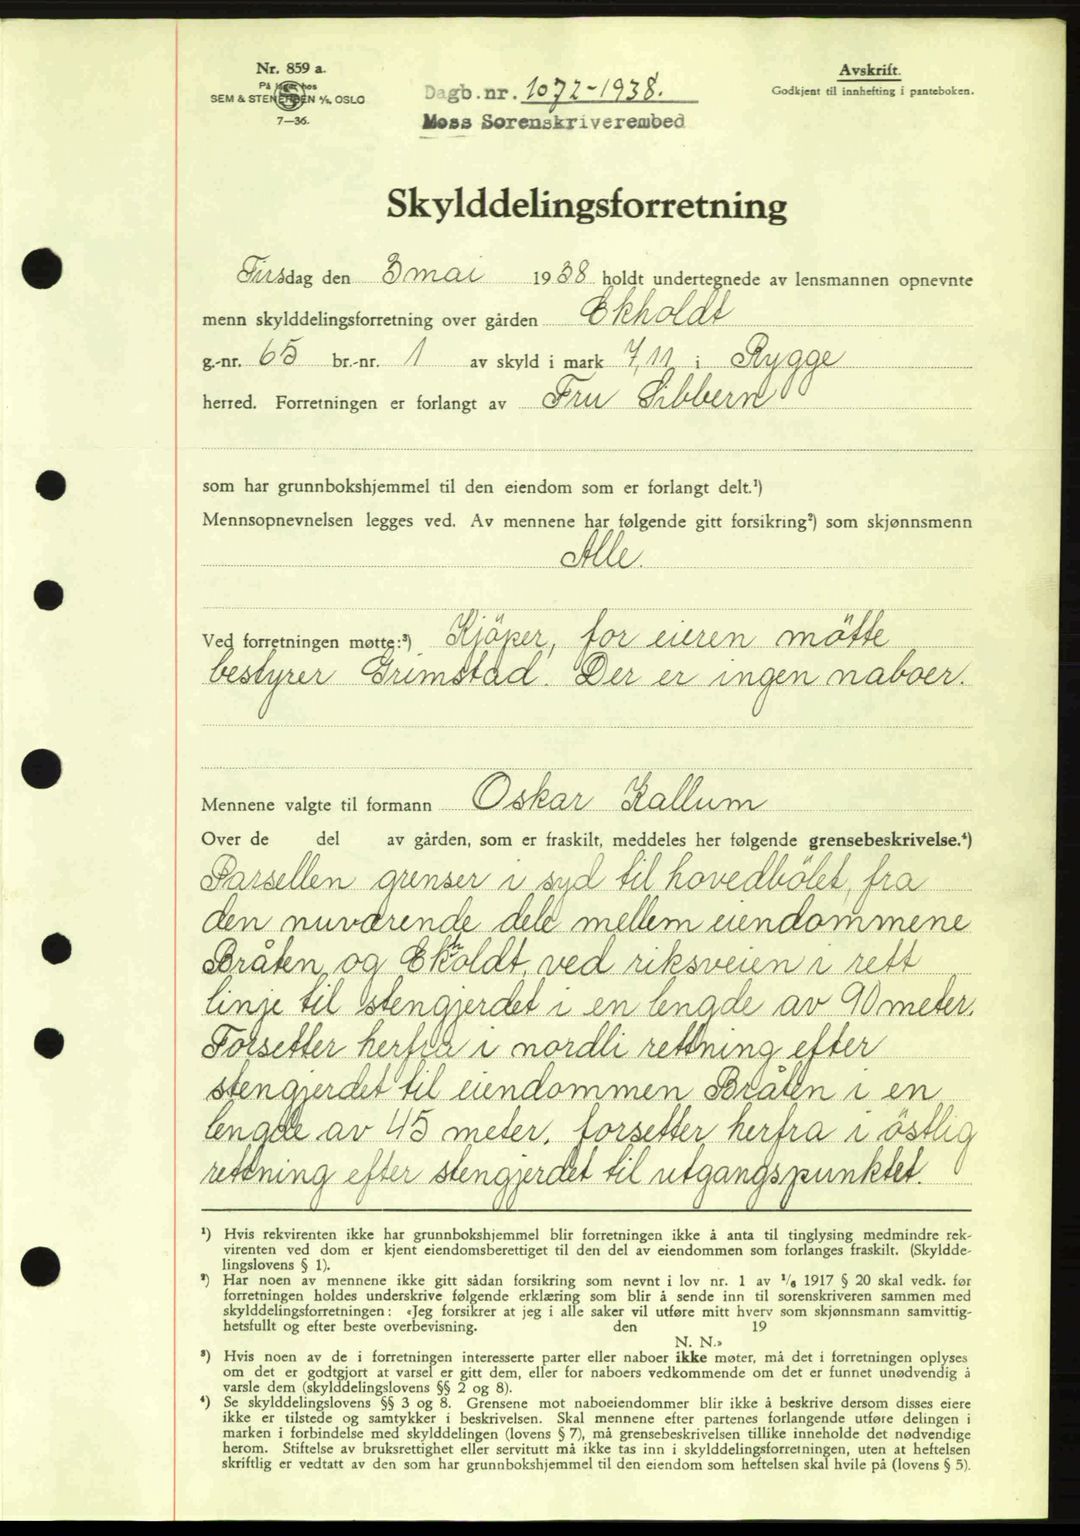 Nr. 859 a.
På lager hos
SEM & STENERSEN A/S, OSLO
7—36.
Dagb.nr. 1072-1938.
Moss Sorenskriverembed
Avskrift.
Godkjent til innhefting i panteboken.
Skylddelingsforretning
Tirsdag den 3 mai 1938 holdt undertegnede av lensmannen opnevnte
menn skylddelingsforretning over gården Ekholdt
g.-nr. 65 br.-nr. 1 av skyld i mark 7,11 i Rygge
herred. Forretningen er forlangt av Fru Sibbern
som har grunnbokshjemmel til den eiendom som er forlangt delt.¹)
Mennsopnevnelsen legges ved. Av mennene har følgende gitt forsikring²) som skjønnsmenn
Alle.
Ved forretningen møtte:³) Kjöper, for eieren mötte
bestyrer Grimstad. Der er ingen naboer.
Mennene valgte til formann Oskar Kallum
Over de del av gården, som er fraskilt, meddeles her følgende grensebeskrivelse.⁴)
Parsellen grenser i syd til hovedbölet, fra
den nuværende dele mellem eiendommene
Bråten og Ekholdt, ved riksveien i rett
linje til stengjerdet i en lengde av 90 meter.
Forsetter herfra i nordli rettning efter
stengjerdet til eiendommen Bråten i en
lengde av 45 meter, forsetter herfra i östlig
rettning efter stengjerdet til utgangspunktet.
¹) Hvis rekvirenten ikke har grunnbokshjemmel blir forretningen ikke å anta til tinglysing medmindre rek-
virenten ved dom er kjent eiendomsberettiget til den del av eiendommen som forlanges fraskilt. (Skyldde-
lingslovens § 1).
²) Har noen av mennene ikke gitt sådan forsikring som nevnt i lov nr. 1 av 1/6 1917 § 20 skal vedk. før
forretningen holdes underskrive følgende erklæring som blir å sende inn til sorenskriveren sammen med
skylddelingsforretningen: «Jeg forsikrer at jeg i alle saker vil utføre mitt hverv som skjønnsmann samvittig-
hetsfullt og efter beste overbevisning. den 19
N. N.»
³) Hvis noen av de i forretningen interesserte parter eller naboer ikke møter, må det i forretningen oplyses
om det er godtgjort at varsel er gitt dem, eller for naboers vedkommende om det er funnet unødvendig å
varsle dem (skylddelingslovens §§ 2 og 8).
⁴) Se skylddelingslovens §§ 3 og 8. Grensene mot naboeiendommer blir ikke å beskrive dersom disses eiere
ikke er tilstede og samtykker i beskrivelsen. Skal mennene efter partenes forlangende utføre delingen i
marken i forbindelse med skylddelingen (lovens § 7), må grensebeskrivelsen tillike inneholde det nødvendige
herom. Stiftelse av bruksrettighet eller servitutt må ikke tas inn i skylddelingsforretningen, uten at heftelsen
skriftlig er vedtatt av den som har grunnbokshjemmel til den eiendom som heftelsen skal hvile på (lovens § 5).